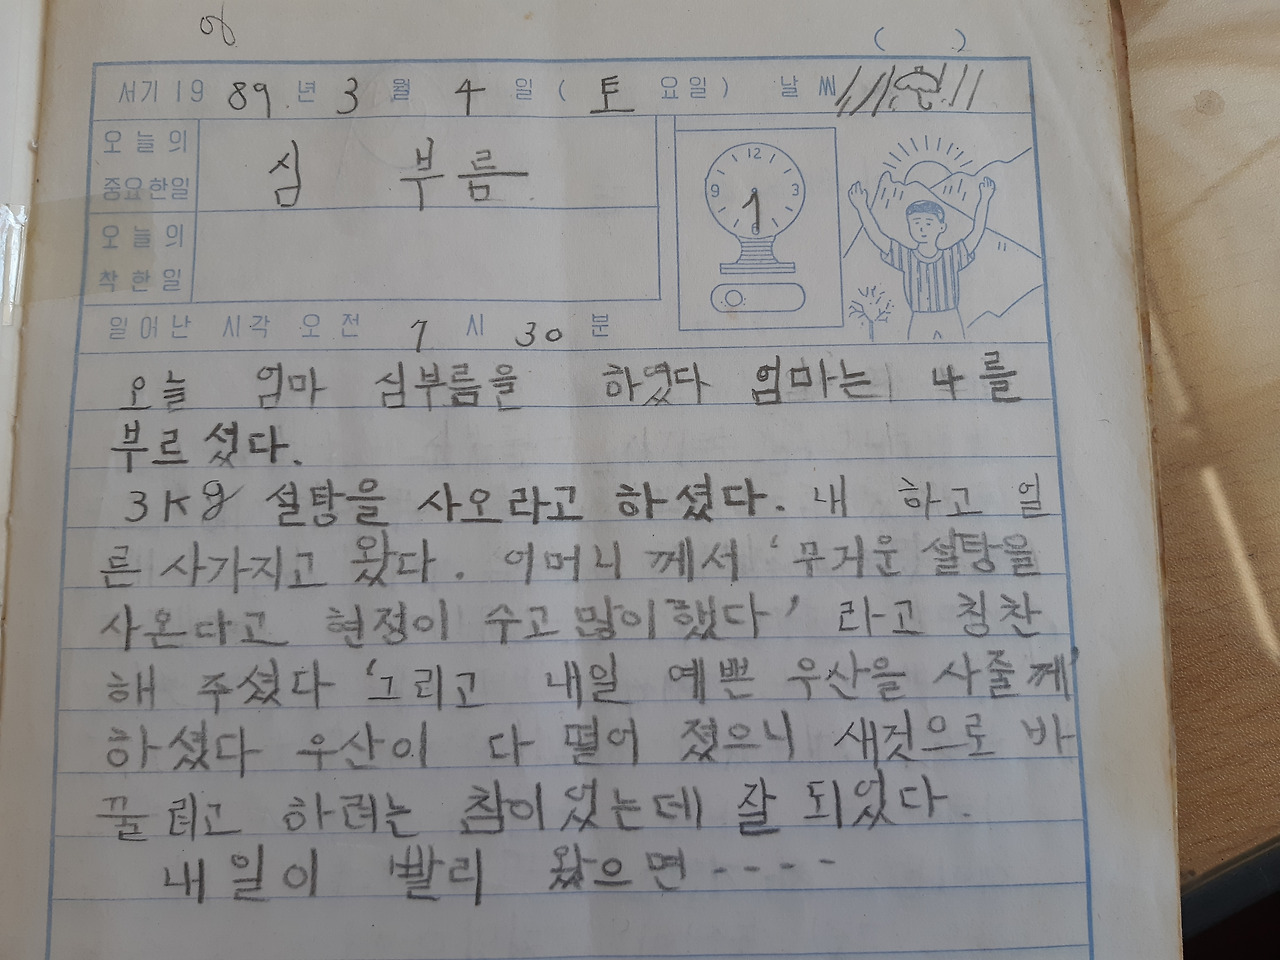 ( )
서기 19 89. 년 3 월 4 일 ( 토 요일 ) 날 씨
오늘의
중요한일
심 부름
12
3
6
9
오늘의
착한일
일어난 시각 오전 7 시 30 분
오늘 엄마 심부름을 하였다 엄마는 4를
부르셨다.
3Kg 설탕을 사오라고 하셨다. 내 하고 얼
른 사가지고 왔다. 어머니 께서 '무거운 설탕을
사온다고 현정이 수고 많이 했다' 라고 칭찬
해 주셨다 '그리고 내일 예쁜 우산을 사줄께'
하셨다 우산이 다 떨어 졌으니 새것으로 바
꿀려고 하려는 참이었는데 잘 되었다.
내일이 빨리 왔으면 ----